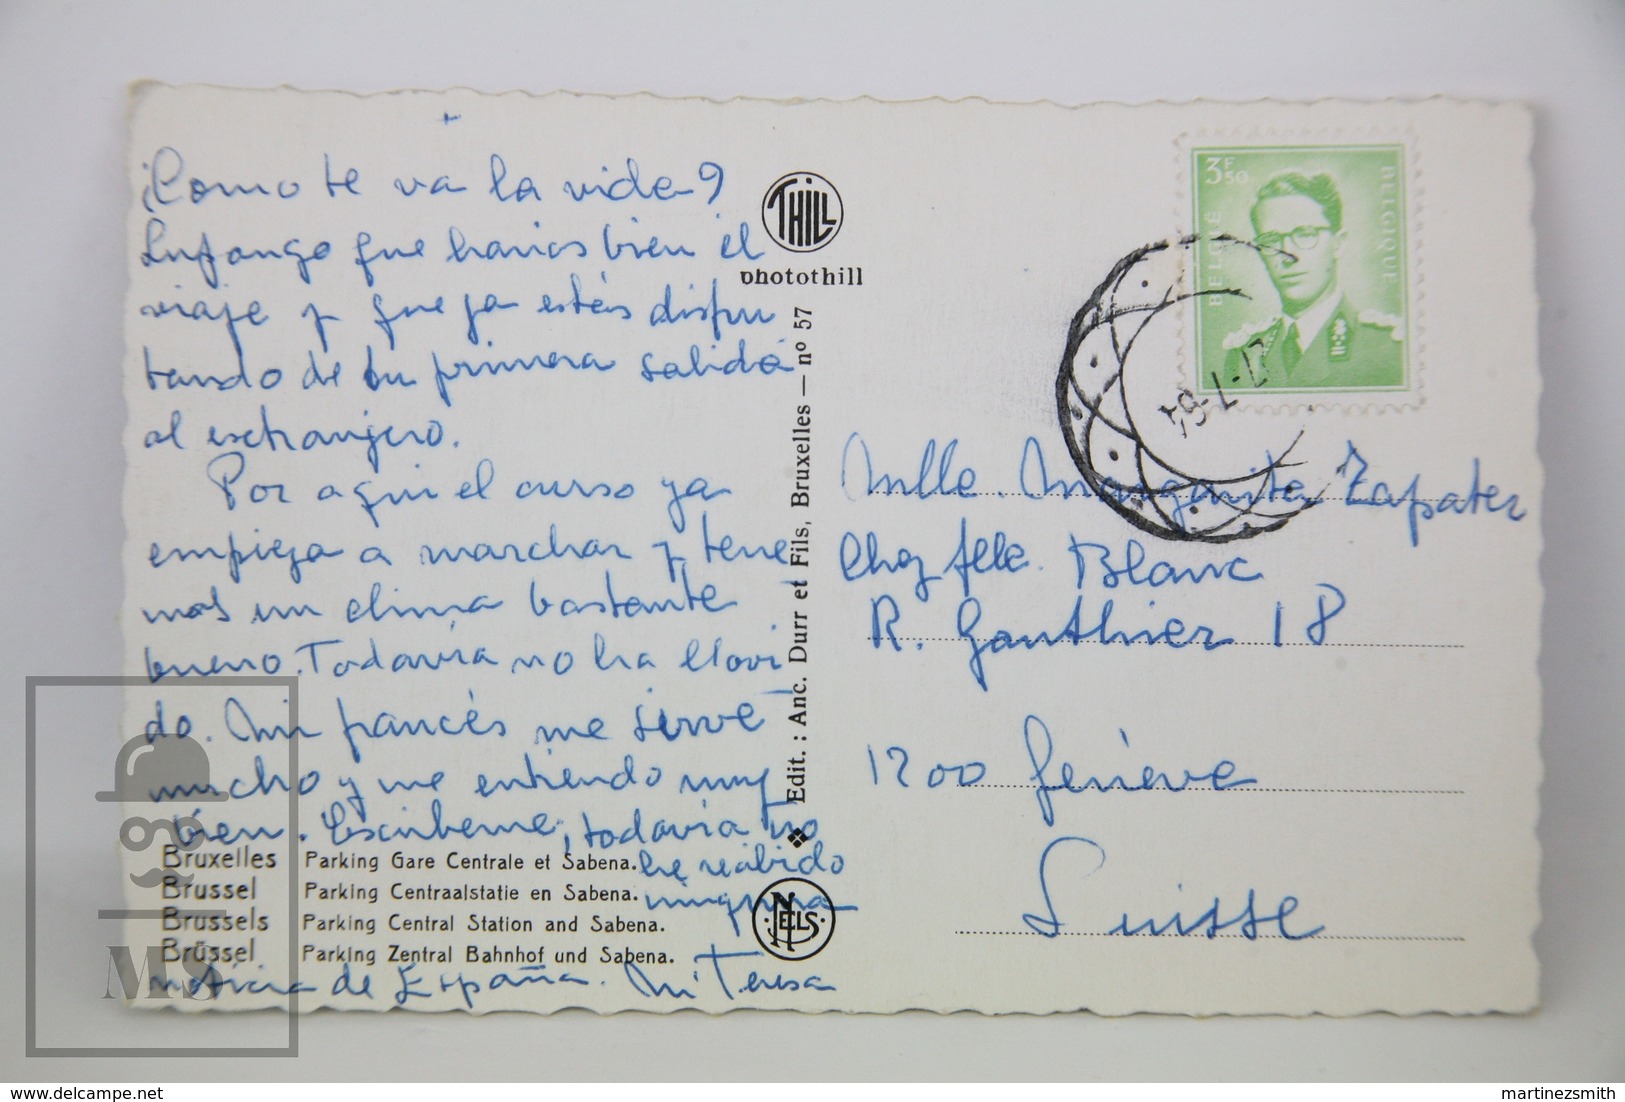 ¡Como te va la vida?
Supongo que harias bien el
viaje y que ya estés disfru
tando de tu primera salida
al extranjero.
Por aqui el curso ya
empieza a marchar y tene
mos un clima bastante
bueno. Todavía no ha llovi
do. Mi francés me sirve
mucho y me entiendo muy
bien. Escribeme, todavía no
he recibido
ninguna
noticia de España. Mi Teresa
Bruxelles Parking Gare Centrale et Sabena.
Brussel Parking Centraalstatie en Sabena.
Brussels Parking Central Station and Sabena.
Brüssel Parking Zentral Bahnhof und Sabena.
THILL
photothill
Edit. : Anc. Durr et Fils, Bruxelles — nº 57
NELS
3F50
BELGIË
BELGIQUE
Mlle. Margarita Zapater
Chez Blanc
R. Gauthier 18
1200 Genève
Suisse
MS
delcampe.net
martinezsmith